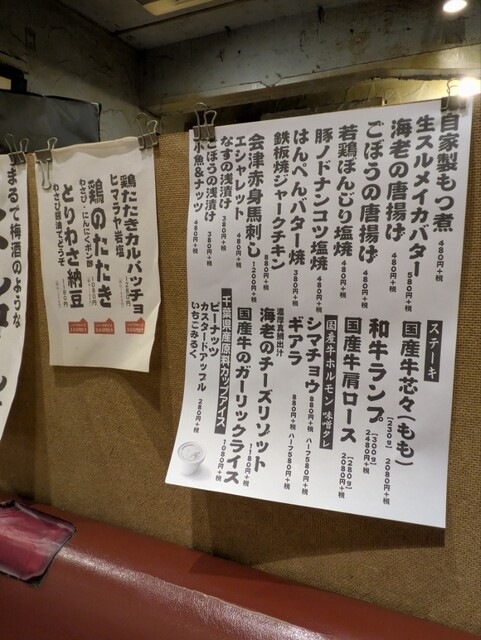 自家製もつ煮 480円+税
生スルメイカバター 580円+税
海老の唐揚げ 480円+税
ごぼうの唐揚げ 480円+税
若鶏ぼんじり塩焼 480円+税
豚ノドナンコツ塩焼 480円+税
はんぺんバター焼 380円+税
鉄板焼ジャークチキン 880円+税
会津赤身馬刺し 1200円+税
エシャレット 480円+税
なすの浅漬け 380円+税
ごぼうの浅漬け 380円+税
小魚&ナッツ 480円+税
ステーキ
国産牛芯々(もも)
[230g] 2080円+税
和牛ランプ
[300g] 2480円+税
国産牛肩ロース
[280g] 2080円+税
国産牛ホルモン 味噌タレ
シマチョウ 880円+税 ハーフ580円+税
ギアラ 880円+税 ハーフ580円+税
海老のチーズリゾット 1180円+税
国産牛のガーリックライス 1080円+税
千葉県産原料カップアイス
ピーナッツ
カスタードアップル
いちごみるく 280円+税
鶏たたきカルパッチョ
ヒマラヤ岩塩
鶏のたたき
わさび・にんにくポン酢
とりわさ納豆
わさび醤油でどうぞ
まるで梅酒のような